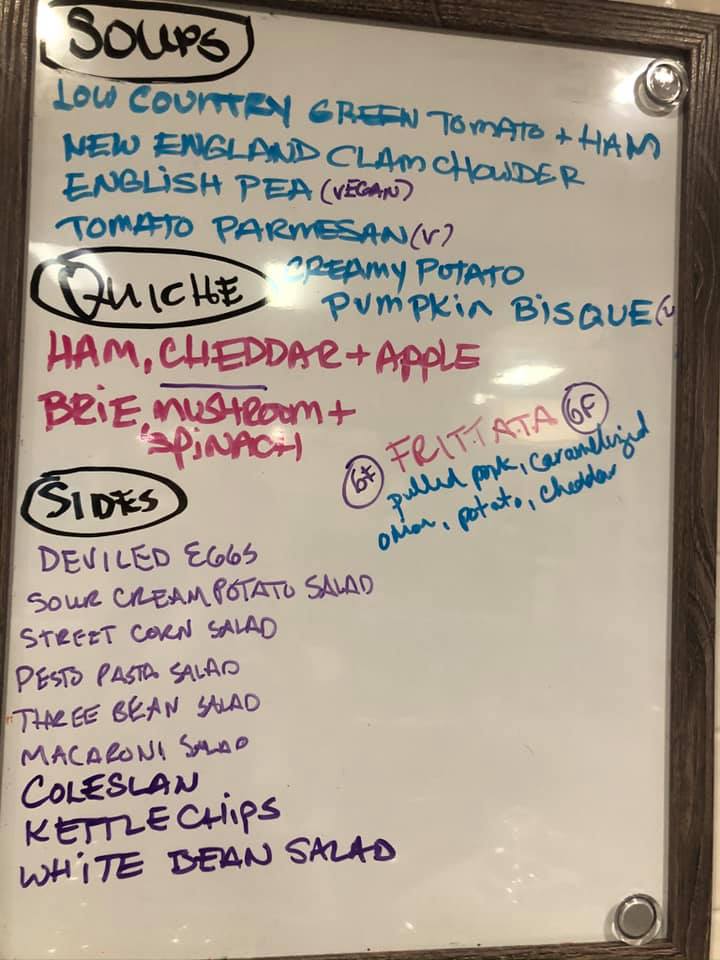 SOUPS
LOW COUNTRY GREEN TOMATO + HAM
NEW ENGLAND CLAM CHOWDER
ENGLISH PEA (VEGAN)
TOMATO PARMESAN (V)
CREAMY POTATO
PUMPKIN BISQUE (V
QUICHE
HAM, CHEDDAR + APPLE
BRIE, MUSHROOM +
SPINACH
GF FRITTATA GF
pulled pork, caramelized
onion, potato, cheddar
SIDES
DEVILED EGGS
SOUR CREAM POTATO SALAD
STREET CORN SALAD
PESTO PASTA SALAD
THREE BEAN SALAD
MACARONI SALAD
COLESLAW
KETTLE CHIPS
WHITE BEAN SALAD